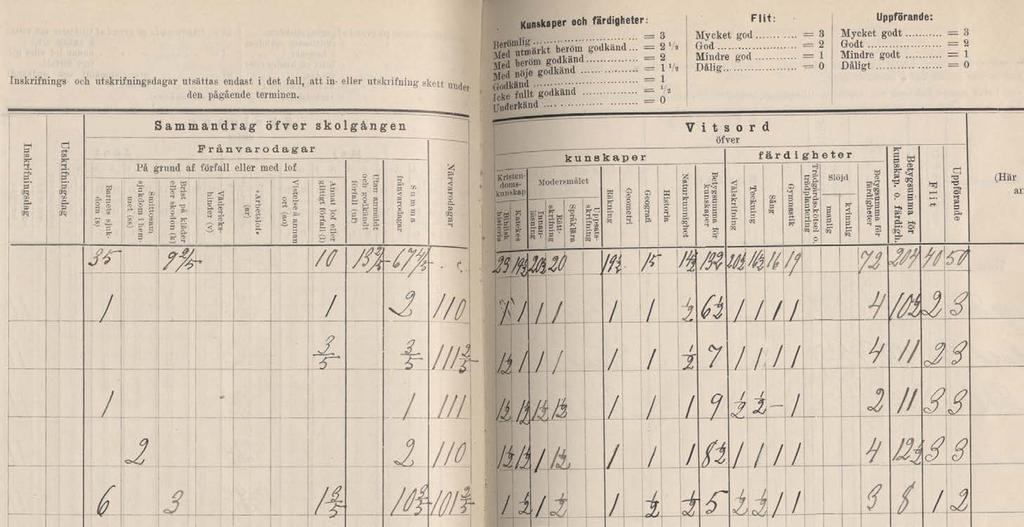 Inskrifnings- och utskrifningsdagar utsättas endast i det fall, att in- eller utskrifning skett under
den pågående terminen.
Sammandrag öfver skolgången
Frånvarodagar
På grund af förfall eller med lof
Inskrifningsdag
Utskrifningsdag
Barnets sjukdom (s)
Smittosam sjukdom i hemmet (ss)
Brist på kläder eller skodon (k)
Väderlekshinder (v)
»Arbetslof» (ar)
Vistelse å annan ort (ao)
Annat lof eller giltigt förfall (l)
Utan anmäldt och godkändt förfall (uf)
Summa frånvarodagar
Närvarodagar
35 9 2/5 10 13 2/5 67 4/5
1 1 2 110
3/5 3/5 111 2/5
1 1 111
2 2 110
6 3 1 3/5 10 3/5 101 2/5
Kunskaper och färdigheter:
Berömlig = 3
Med utmärkt beröm godkänd = 2 1/2
Med beröm godkänd = 2
Med nöje godkänd = 1 1/2
Godkänd = 1
Icke fullt godkänd = 1/2
Underkänd = 0
Flit:
Mycket god = 3
God = 2
Mindre god = 1
Dålig = 0
Uppförande:
Mycket godt = 3
Godt = 2
Mindre godt = 1
Dåligt = 0
Vitsord
öfver
kunskaper
färdigheter
Kristendomskunskap
Biblisk historia
Katekes
Modersmålet
Innanläsning
Rättskrifning
Språklära
Uppsatsskrifning
Räkning
Geometri
Geografi
Historia
Naturkunnighet
Betygsumma för kunskaper
Välskrifning
Teckning
Sång
Gymnastik
Trädgårdsskötsel o. trädplantering
Slöjd
manlig
kvinnlig
Betygsumma för färdigheter
Betygsumma för kunskap. o. färdigh.
Flit
Uppförande
(Här
1 1 1 1 1 1 1/2 6 1/2 1 1 1 1 4 10 1/2 2 3
1 1/2 1 1 1 1 1 1/2 7 1 1 1 1 4 11 2 3
1 1/2 1 1/2 1 1/2 1 1/2 1 1 1 9 1/2 1/2 - 1 2 11 3 3
1 1/2 1 1/2 1 1 1/2 1 1 1 8 1/2 1 1 1 1 4 12 1/2 3 3
1 1/2 1 1/2 1 1/2 1/2 5 1/2 1/2 1 1 3 8 1 2